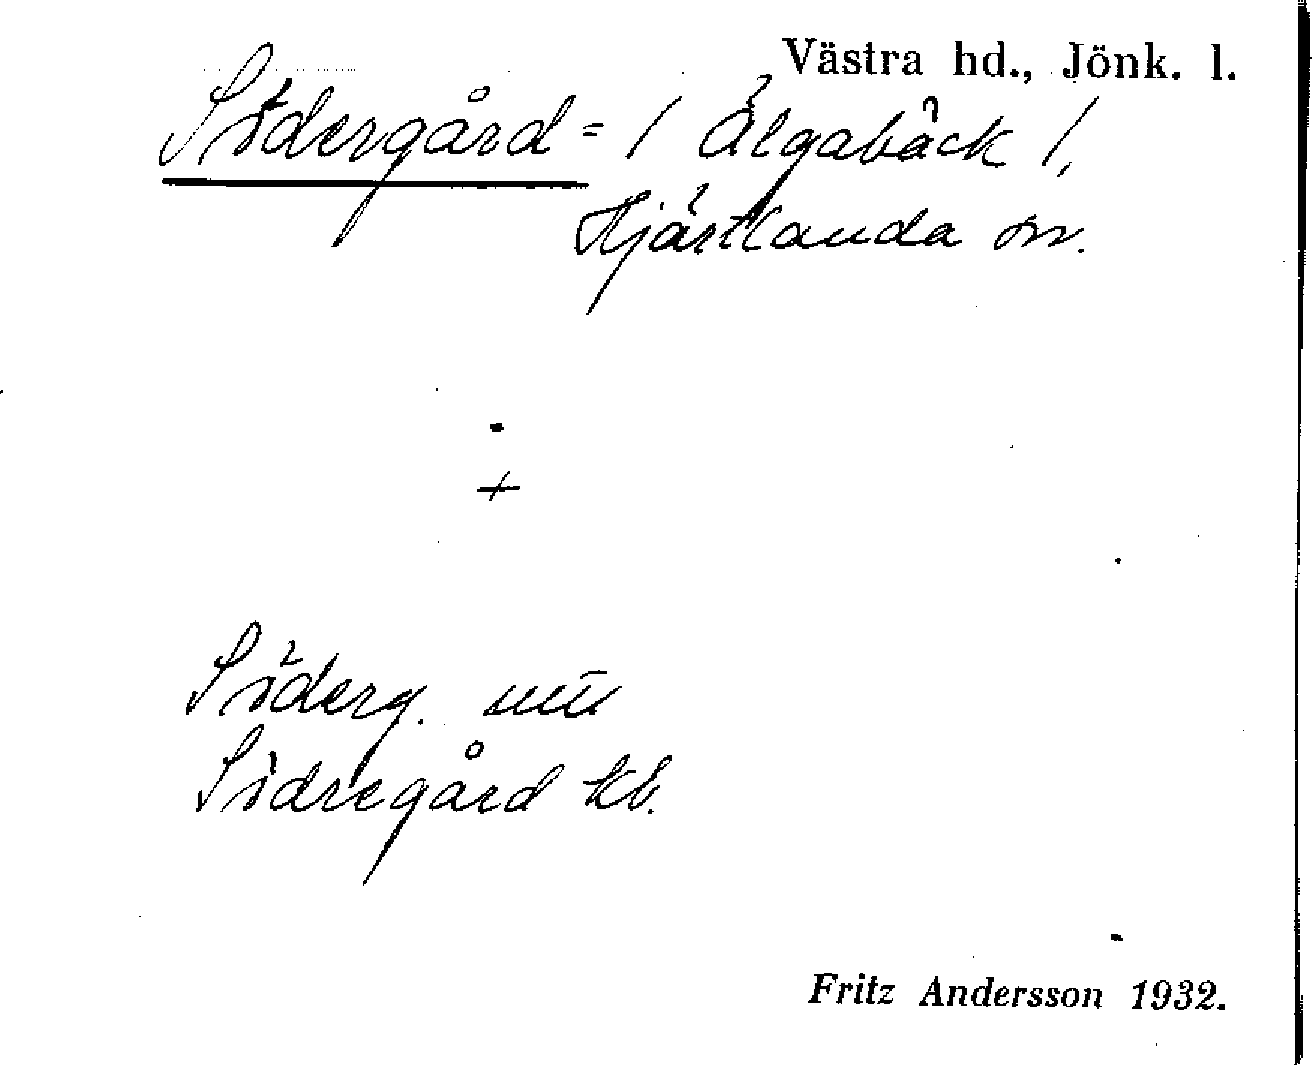 Västra hd., Jönk. l.
Södergård = / Älgabäck /,
Hjärtlanda sn.
+
Söderg. mü
Södregård kb.
Fritz Andersson 1932.